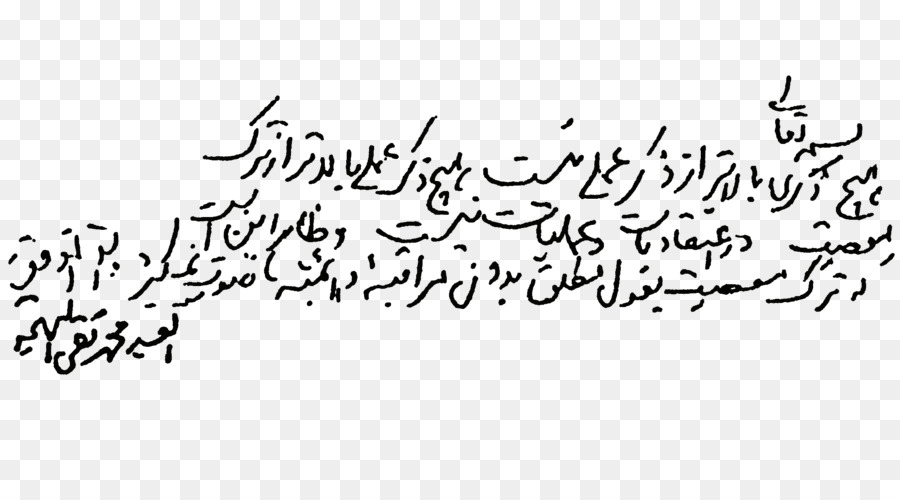 بسمه تعالی
هیچ ذکری بالاتر از ذکر عملی نیست هیچ ذکر عملی بالاتر از ترک
معصیت در اعتقادیات و عملیات نیست و ظاهر این است
که ترک معصیت بقول مطلق بدون مراقبهٔ دائمیه صورت نمی‌گیرد و الله الموفق
العبد محمد تقی البهجة